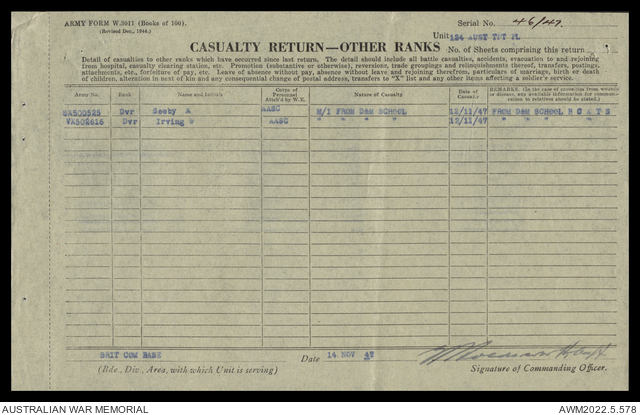 ARMY FORM W.3011 (Books of 100).
(Revised Dec., 1944.)
Serial No. 46/47
Unit 124 AUST TPT PL
CASUALTY RETURN—OTHER RANKS
No. of Sheets comprising this return
Detail of casualties to other ranks which have occurred since last return. The detail should include all battle casualties, accidents, evacuation to and rejoining
from hospital, casualty clearing station, etc. Promotion (substantive or otherwise), reversions, trade groupings and relinquishments thereof, transfers, postings,
attachments, etc., forfeiture of pay, etc. Leave of absence without pay, absence without leave and rejoining therefrom, particulars of marriage, birth or death
of children, alteration in next of kin and any consequential change of postal address, transfers to "X" list and any other items affecting a soldier's service.
Army No.
Rank
Name and Initials
Corps of
Personnel
Attch'd by W.E.
Nature of Casualty
Date of
Casualty
REMARKS. (In the case of casualties from wounds
or disease, any available information for communi-
cation to relatives should be stated.)
500525 Dvr Seeby AASC M/I FROM D&M SCHOOL 12/11/47 FROM D&M SCHOOL B C A T S
VX502616 Dvr Irving AASC " " " " 12/11/47 " " " "
BRIT COM BASE
(Bde., Div., Area, with which Unit is serving)
Date 14 NOV 47
Signature of Commanding Officer.
AUSTRALIAN WAR MEMORIAL
AWM2022.5.578